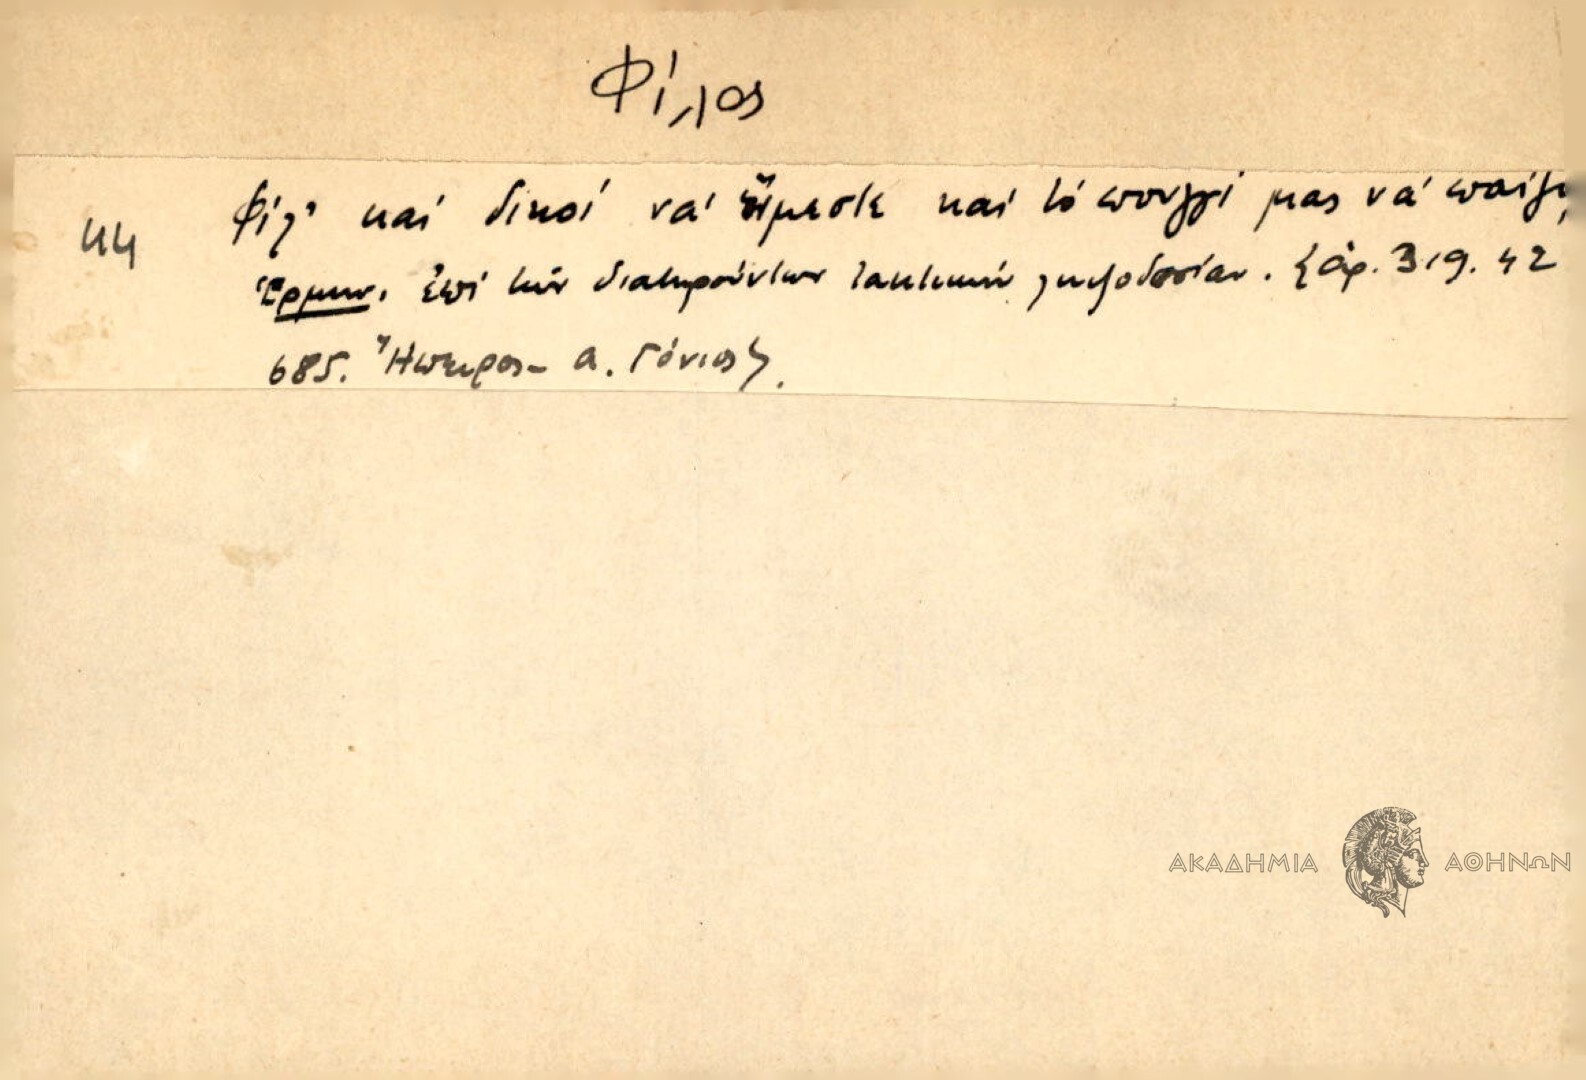 Φίλος
44 Φίλ' καί δικοί νά ἤμεστε καί τό πουγγί μας νά παίζῃ
Ἑρμην. ἐπί τῶν διατηρούντων τακτικήν ληψοδοσίαν. {ἀρ. 319. 42
685. Ἤπειρος - Α. Γόνιος}.
ΑΚΑΔΗΜΙΑ ΑΘΗΝΩΝ